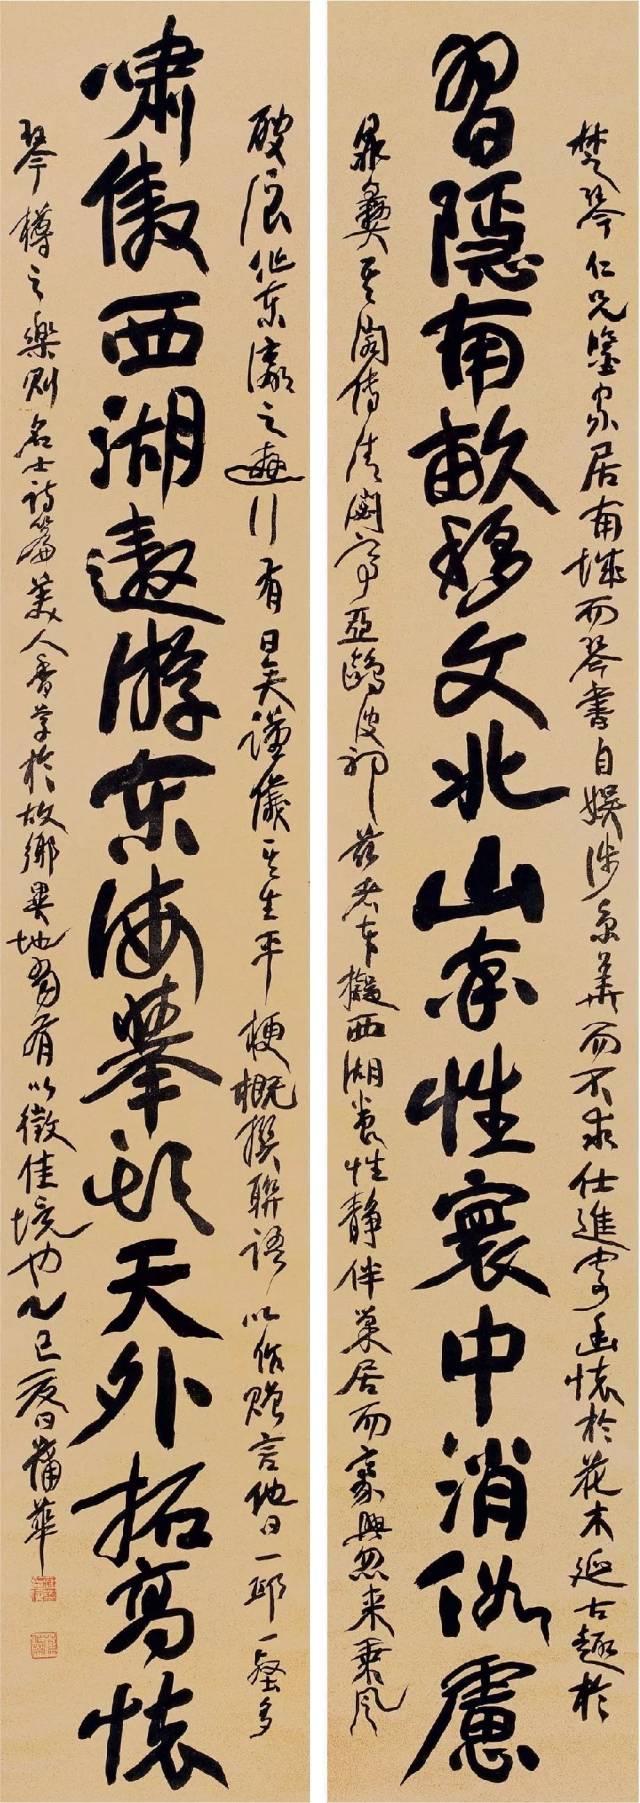 楚琴仁兄鑒家居南城而琴書自娛涉京華而不求仕進寄幽懷於花木延古趣於
習隱南畝移文北山率性寰中消俗慮
鼎彝其閣傳清閟亭亞鷗波耶茲者本擬西湖養性靜伴巢居而豪興忽來乘風
破浪作東瀛之遊行有日矣謹儀其生平梗概撰聯語以作贈言他日一邱一壑多
嘯傲西湖遨游東海舉頭天外拓高懷
琴樽之樂則名士詩篇美人香草於故鄉異地有以徵佳境也乙巳夏日蒲華